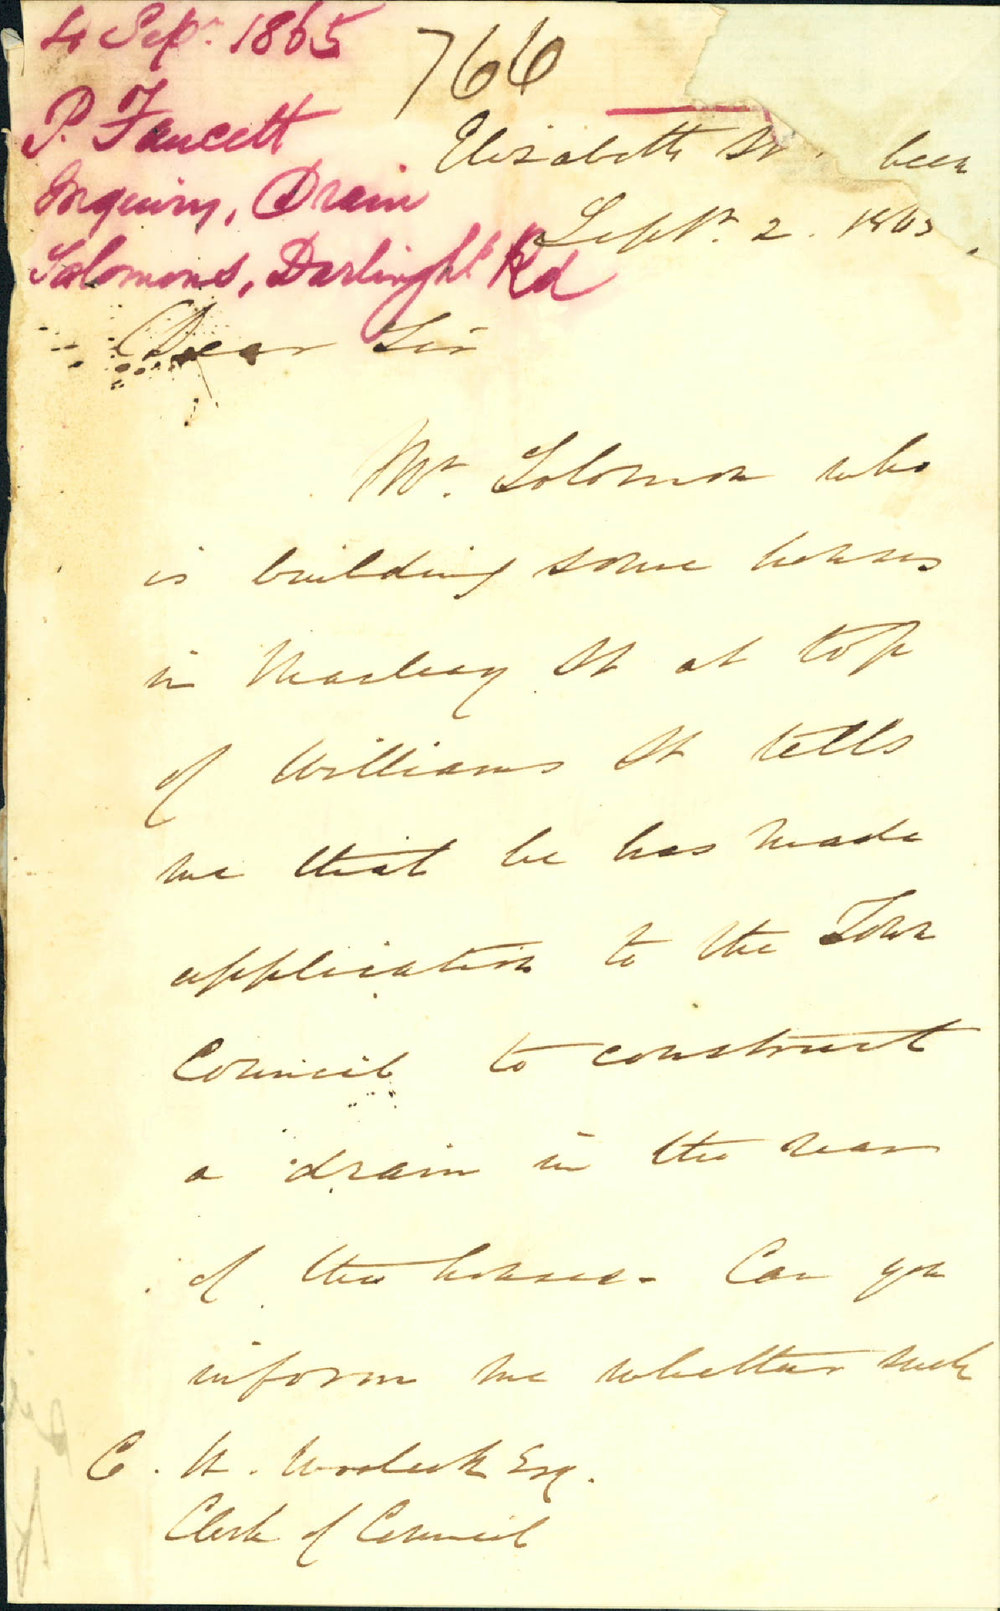 4 Sepr. 1865
766
P. Faucett
Inquiry, Drain
Solomons, Darlinght Rd
Elizabeth St.
Septr. 2. 1865
Dear Sir
Mr. Solomon who
is building some houses
in Macleay St at top
of Williams St tells
me that he has made
application to the Town
Council to construct
a drain in the rear
of the houses - Can you
inform me whether such
C. H. Woolcott Esq.
Clerk of Council